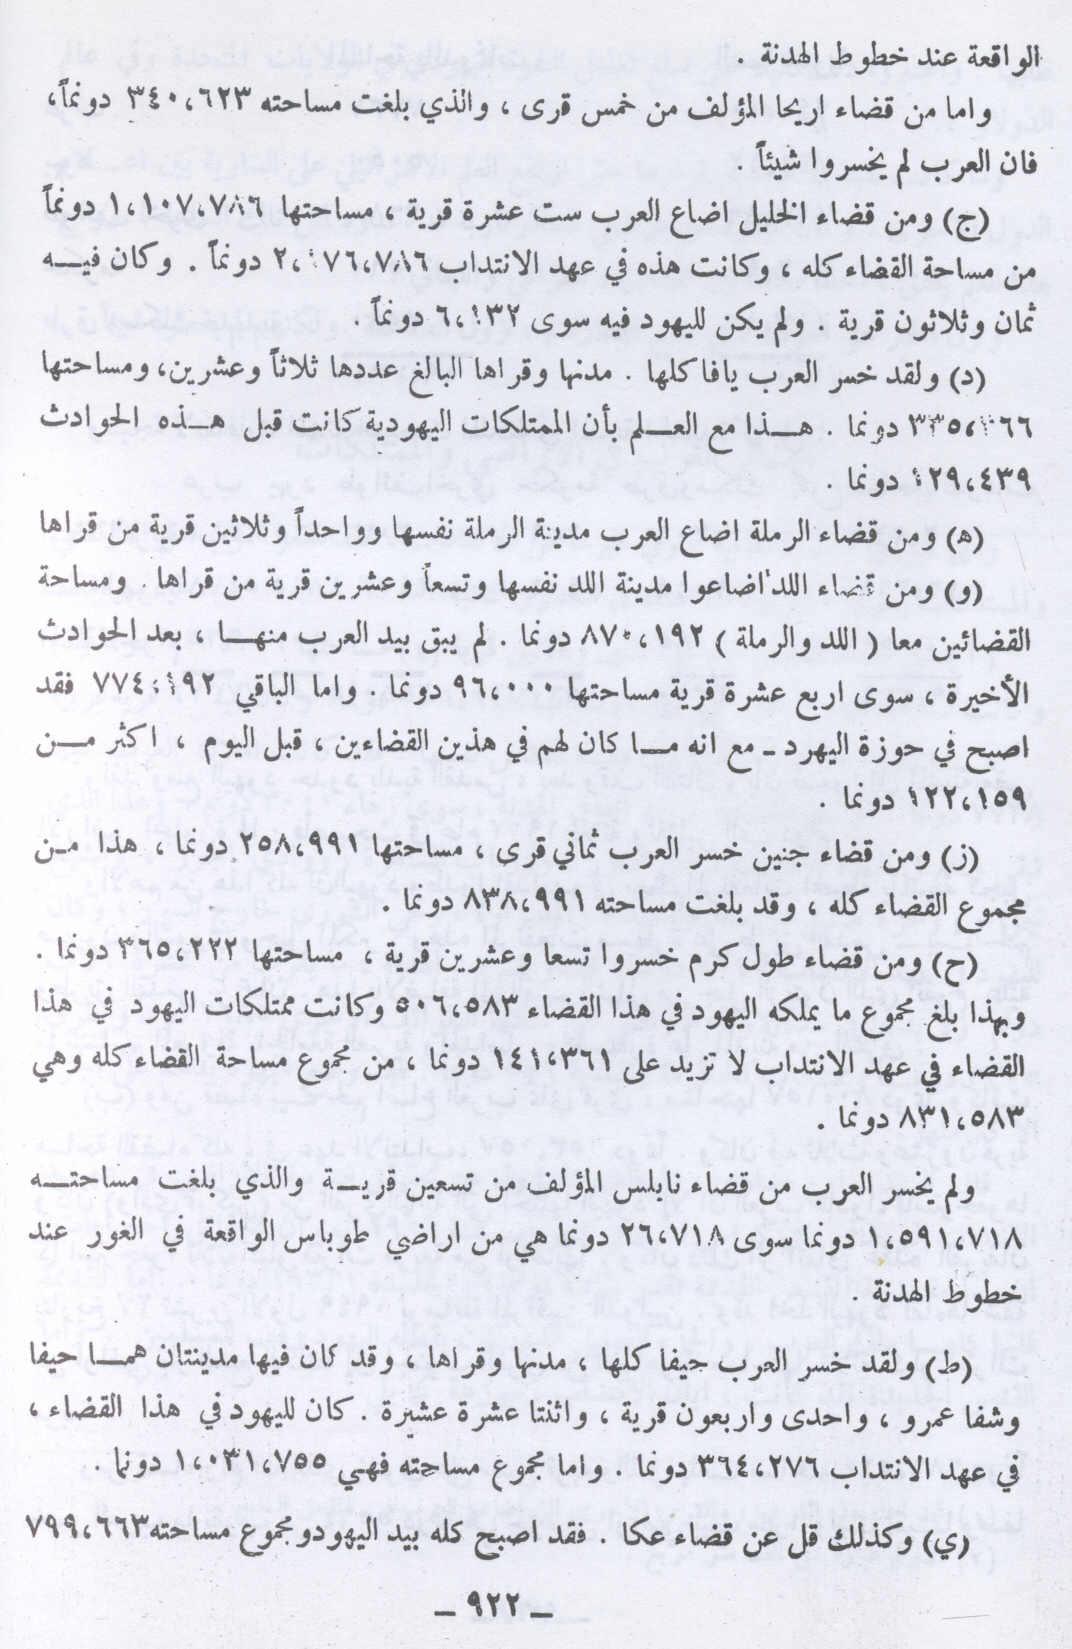 الواقعة عند خطوط الهدنة .
واما من قضاء اريحا المؤلف من خمس قرى ، والذي بلغت مساحته ٣٤٠،٦٢٣ دونماً،
فان العرب لم يخسروا شيئاً .
(ج) ومن قضاء الخليل اضاع العرب ست عشرة قرية ، مساحتها ١،١٠٧،٧٨٦ دونماً
من مساحة القضاء كله ، وكانت هذه في عهد الانتداب ٢،١٧٦،٧٨٦ دونماً . وكان فيـــه
ثمان وثلاثون قرية . ولم يكن لليهود فيه سوى ٦،١٣٢ دونماً .
(د) ولقد خسر العرب يافا كلها . مدنها وقراها البالغ عددها ثلاثاً وعشرين، ومساحتها
٣٣٥،٣٦٦ دونما . هـــذا مع العـــلم بأن الممتلكات اليهودية كانت قبل هـــذه الحوادث
١٢٩،٤٣٩ دونما .
(ه) ومن قضاء الرملة اضاع العرب مدينة الرملة نفسها وواحداً وثلاثين قرية من قراها
(و) ومن قضاء اللد اضاعوا مدينة اللد نفسها وتسعاً وعشرين قرية من قراها . ومساحة
القضائين معا ( اللد والرملة ) ٨٧٠،١٩٢ دونما . لم يبق بيد العرب منهــا ، بعد الحوادث
الأخيرة ، سوى اربع عشرة قرية مساحتها ٩٦،٠٠٠ دونما . واما الباقي ٧٧٤،١٩٢ فقد
اصبح في حوزة اليهرد ـ مع انه مـــا كان لهم في هذين القضاءين ، قبل اليوم ، اكثر مـــن
١٢٢،١٥٩ دونما .
(ز) ومن قضاء جنين خسر العرب ثماني قرى ، مساحتها ٢٥٨،٩٩١ دونما ، هذا مـن
مجموع القضاء كله ، وقد بلغت مساحته ٨٣٨،٩٩١ دونما .
(ح) ومن قضاء طول كرم خسروا تسعا وعشرين قرية ، مساحتها ٣٦٥،٢٢٢ دونما .
وبهذا بلغ مجموع ما يملكه اليهود في هذا القضاء ٥٠٦،٥٨٣ وكانت ممتلكات اليهود في هذا
القضاء في عهد الانتداب لا تزيد على ١٤١،٣٦١ دونما ، من مجموع مساحة القضاء كله وهي
٨٣١،٥٨٣ دونما .
ولم يخسر العرب من قضاء نابلس المؤلف من تسعين قريــة والذي بلغت مساحتــه
١،٥٩١،٧١٨ دونما سوى ٢٦،٧١٨ دونما هي من اراضي طوباس الواقعة في الغور عند
خطوط الهدنة .
(ط) ولقد خسر العرب حيفا كلها ، مدنها وقراها ، وقد كان فيها مدينتان همــا حيفا
وشفا عمرو ، واحدى واربعون قرية ، واثنتا عشرة عشيرة . كان لليهود في هذا القضاء ،
في عهد الانتداب ٣٦٤،٢٧٦ دونما . واما مجموع مساحته فهي ١،٠٣١،٧٥٥ دونما .
(ي) وكذلك قل عن قضاء عكا . فقد اصبح كله بيد اليهود ومجموع مساحته ٧٩٩،٦٦٣
ـ ٩٢٢ ـ